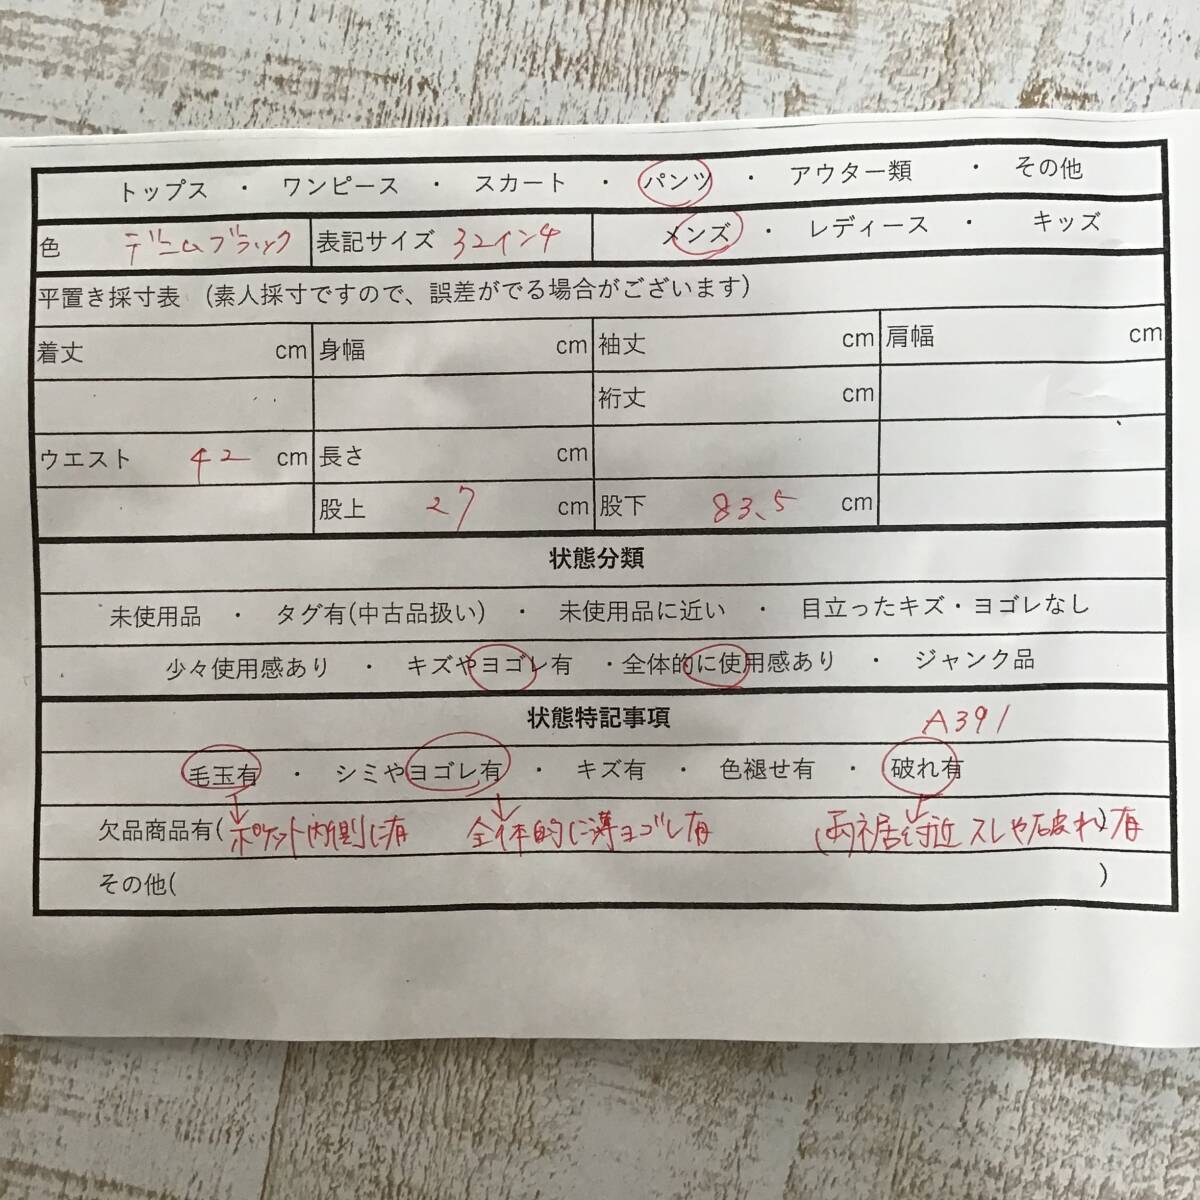 トップス ・ ワンピース ・ スカート ・ パンツ ・ アウター類 ・ その他
色 デニムブラック 表記サイズ 32インチ メンズ ・ レディース ・ キッズ
平置き採寸表 (素人採寸ですので、誤差がでる場合がございます)
着丈 cm 身幅 cm 袖丈 cm 肩幅 cm
裄丈 cm
ウエスト 42 cm 長さ cm
股上 27 cm 股下 83.5 cm
状態分類
未使用品 ・ タグ有(中古品扱い) ・ 未使用品に近い ・ 目立ったキズ・ヨゴレなし
少々使用感あり ・ キズやヨゴレ有 ・全体的に使用感あり ・ ジャンク品
状態特記事項 A391
毛玉有 ・ シミやヨゴレ有 ・ キズ有 ・ 色褪せ有 ・ 破れ有
欠品商品有( ポケット内側に有 全体的に薄ヨゴレ有 (両裾付近 スレや破れ)有
その他( )